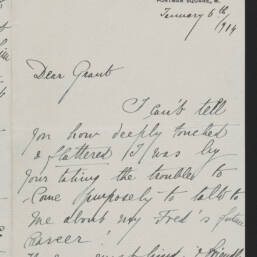 PORTMAN SQUARE, W.
January 6th, 1914
Dear Grant
I can't tell
you how deeply touched
& flattered I was by
your taking the trouble to
come purposely to talk to
me about my Fred's future
career!
kind &